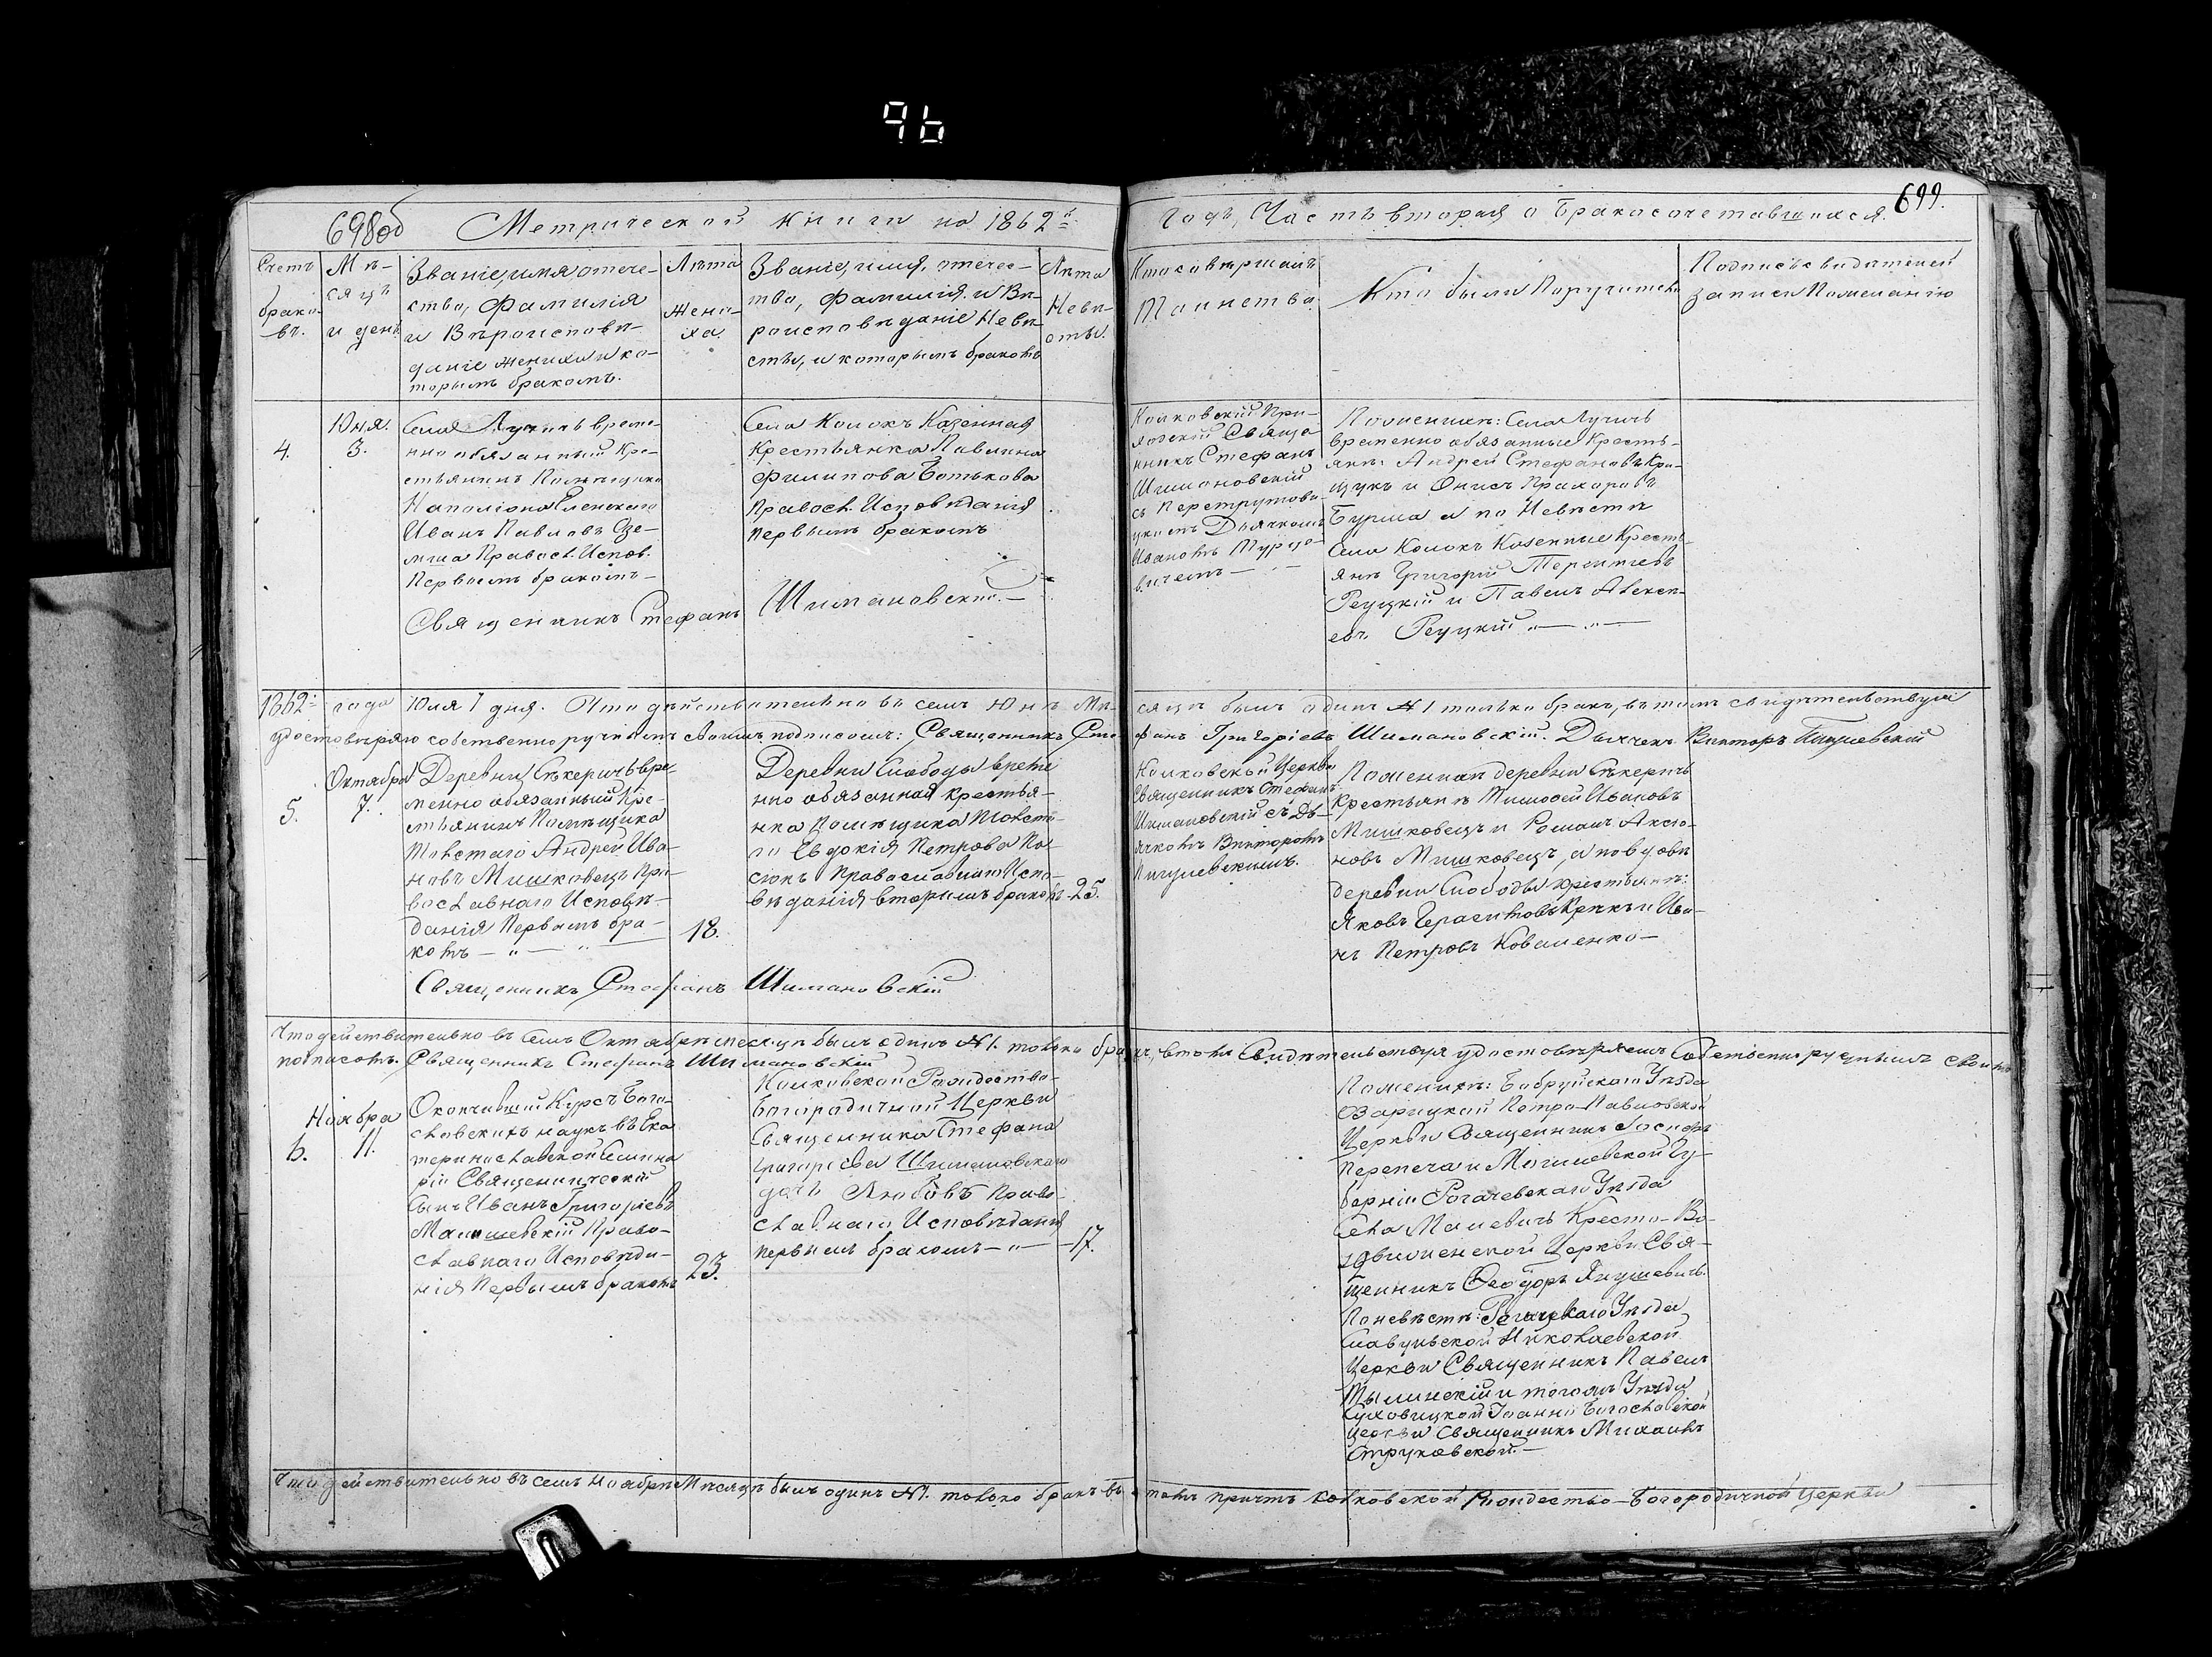 96
698об Метрической книги на 1862й
годъ, Часть вторая о Бракосочетавшихся.
699.
Счетъ браковъ.
Мѣсяцъ и день.
Званіе, имя отече-
ство, фамилія
и Вѣроисповѣ-
даніе жениха и ко-
торымъ бракомъ.
Лѣта
жени-
ха.
Званіе, имя, отчес-
тво, фамилія. и Вѣ-
роисповѣданіе Невѣ-
сты, и которымъ бракомъ
Лѣта
Невѣ-
сты.
Кто совершалъ
Таинство.
Кто были Поручители
Подпись свидѣтелей
записи По желанію
4.
Юня.
3.
Села Лучичь време-
нно обязанный Кре-
стьянинъ Помѣщика
Наполіона Еленскаго
Иванъ Павловъ
Правосл. Испов.
Первымъ бракомъ —
Села Колокъ Казенная
Крестьянка Павлина
Филипова Ботькова
Правосл. Исповѣданія
первымъ бракомъ
Священникъ Стефанъ Шимановскій. —
Колковскій При-
ходскій Свяще-
нникъ Стефанъ
Шимановскій
съ
Дьячкомъ
Иваномъ
Поженихѣ: Села Лучичь
временно обязанные Кресть-
яне: Андрей Стефановъ Кри-
щукъ и Онисъ Прохоровъ
Бурша а по Невѣстѣ
Села Колокъ Казенные Кресть-
яне Григорій Терентіевъ
Реуцкій и Павелъ Алексѣ-
евъ Реуцкій „— „—
1862: года Юля 1 дня. Что дѣйствительно въ семъ Юнѣ Мѣ-
сяцѣ былъ одинъ №1 только бракъ, въ томъ свидѣтельствуя
удостовѣряю собственноручнымъ своимъ подписомъ: Священникъ Сте-
фанъ Григоріевъ Шимановскій. Дьячекъ Викторъ Пигулевскій
5.
Октября
7.
Деревни Секеричь вре-
менно обязанный Кре-
стьянинъ Помѣщика
Толстаго Андрей Ива-
новъ Мишковецъ Пра-
вославнаго Исповѣ-
данія Первымъ бра-
комъ — „ — „ —
18.
Деревни Слободы време
нно обязанная крестья-
нка Помѣщика Толста-
го Евдокія Петрова По-
сюкъ Православнаго Испо-
вѣданія вторымъ бракомъ
25.
Священникъ Стефанъ Шимановскій
Колковской Церкви
Священникъ Стефанъ
Шимановскій съ Дь-
ячкомъ Викторомъ
Пигулевскимъ.
Поженихѣ деревни Секеричь
Крестьяне Тимофей Ивановъ
Мишковецъ и Романъ Аксіо-
новъ Мишковецъ, а по вдовѣ
деревни Слободы крестьяне:
Яковъ Герасимовъ Крекъ и Ива-
нъ Петровъ Коваленко —
Что действительно въ семъ Октябрѣ месяцѣ былъ одинъ №1. только бракъ, втомъ Свидѣтельствуя удостовѣряемъ Собственноручнымъ своимъ
подписомъ. Священникъ Стефанъ Шимановскій
6.
Ноября
11.
Окончившій Курсъ Бого-
словскихъ наукъ въ Ека
теринославской Семина
ріи Священническій
Сынъ Иванъ Григоріевъ
Малишевскій Право-
славнаго Исповѣда-
нія Первымъ бракомъ
23.
Колковской Рождество-
Богородичной Церкви
Священника Стефана
Григорiева Шимановскаго
дочь Любовь Право-
славнаго Исповѣданія
первымъ бракомъ — „ —
17.
Поженихѣ: Бобруйскаго Уѣзда
Озарицкой Петро-Павловской
Церкви Священникъ Іосифъ
Перепеча и Могилевской Гу-
берніи Рогачевскаго Уѣзда
Села Малевичь Кресто-Во-
здвиженской Церкви Свя-
щенникъ Феодоръ Янушевичъ.
Поневѣстѣ: Рогачевскаго Уѣзда
Николаевской
Церкви Священникъ Павелъ
Тылинскій и тогожъ Уѣзда
Іоанно Богословской
Церкви Священникъ Михаилъ
Струковской. —
Что действительно въ семъ Ноябрѣ Мѣсяцѣ былъ одинъ №1. только бракъ въ томъ причтъ Колковской Рождество-Богородичной Церкви